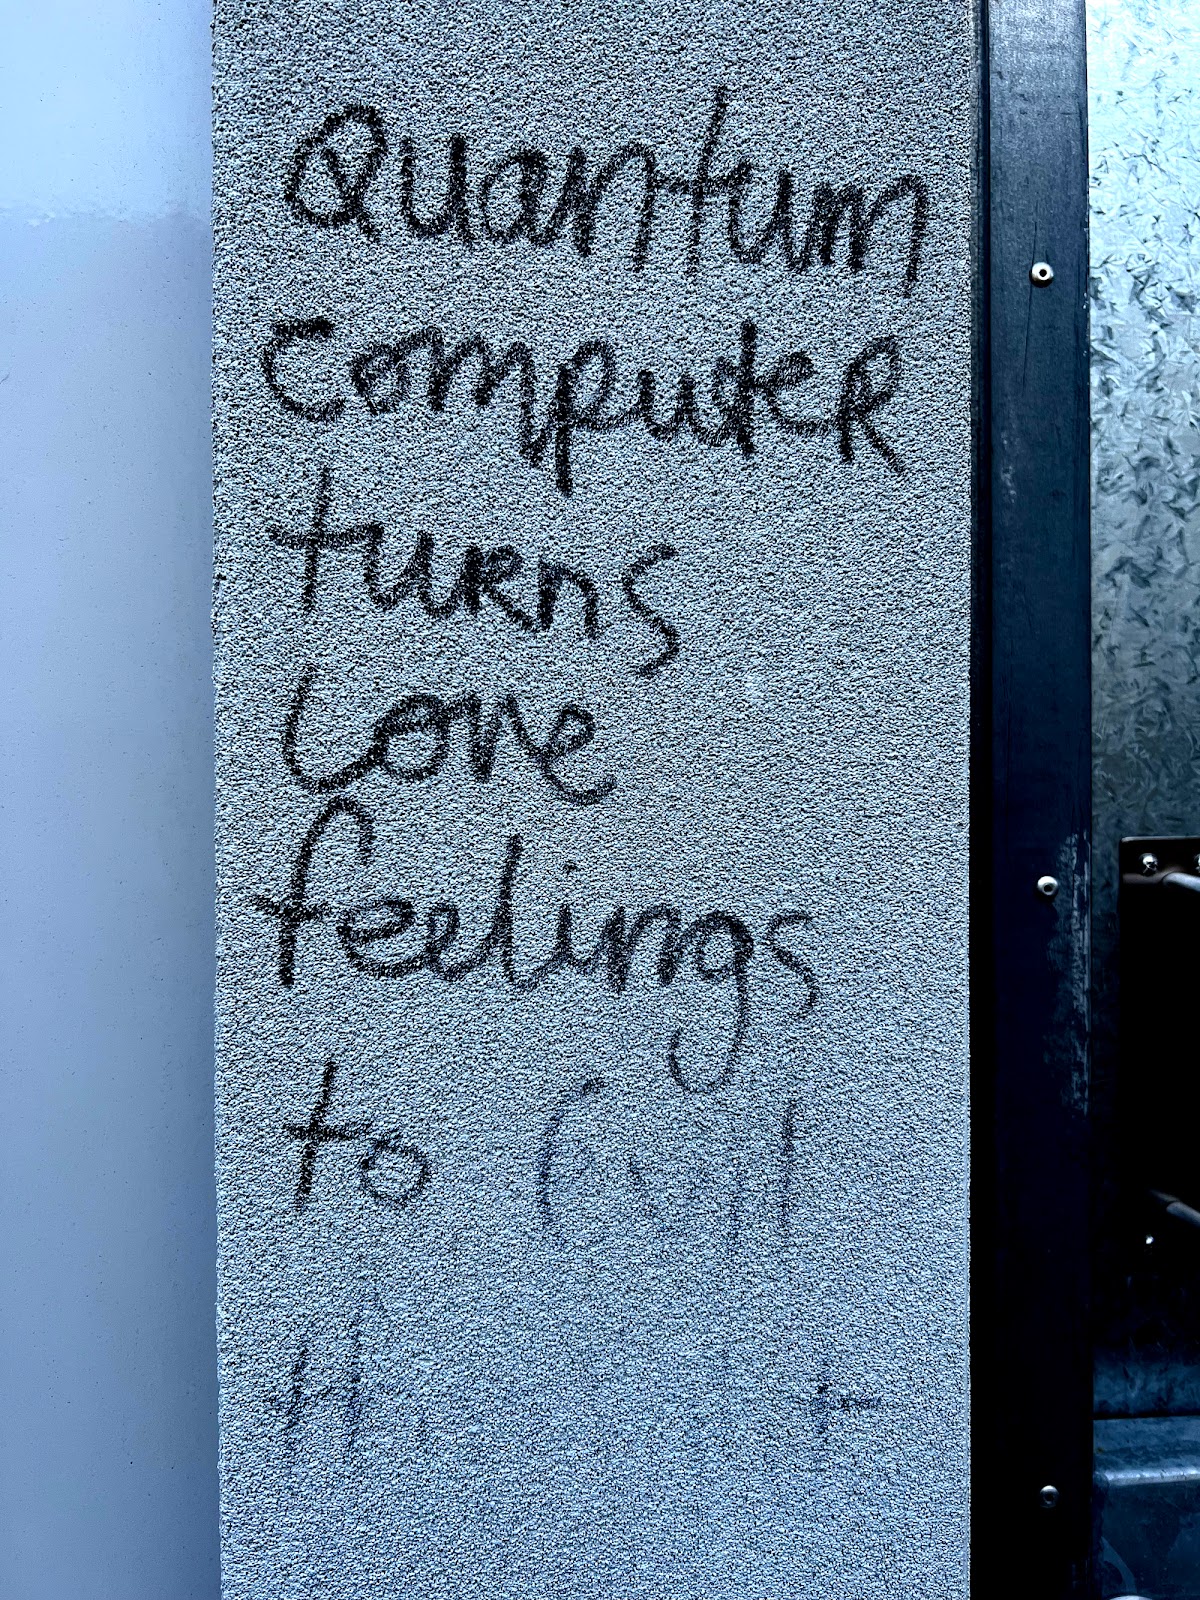 Quantum
computer
turns
love
feelings
to